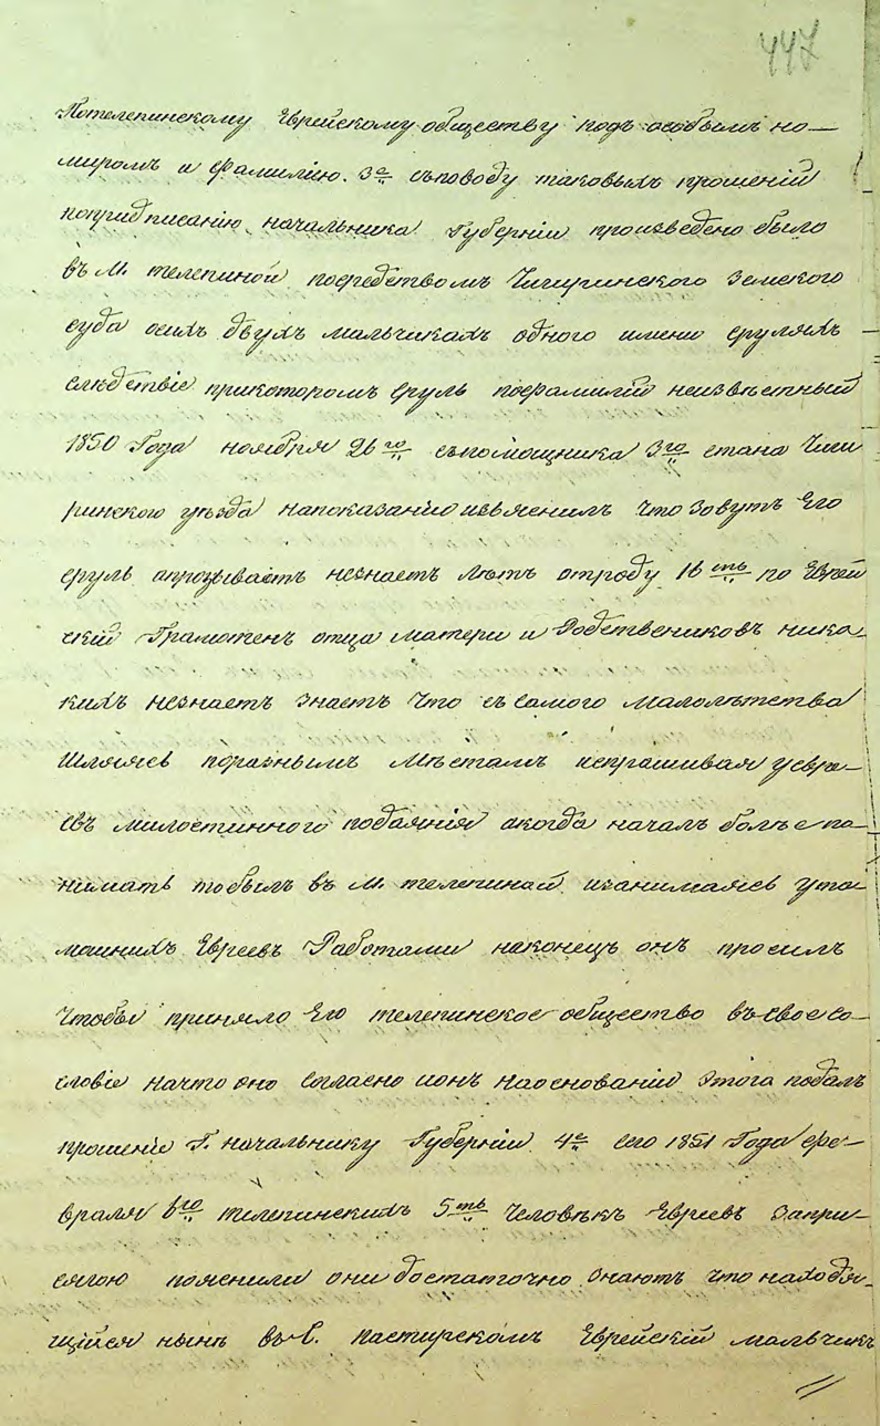 447
Потелепинскому Еврейскому обществу подъ особымъ но—
миромъ и фамиліею. 3е съповоду таковыхъ прошеній
попридписанію начальника Губерніи произведено было
въ М. телепиной посредствомъ Чигиринского Земского
суда осихъ двухъ мальчикахъ одного имени сруляхъ
слѣдствіе прикоторомъ сруль пофамиліи неизвѣстный
1850 Года ноября 26го съпомощника 3го стана Чиги
ринского уѣзда напоказанію изъяснилъ что Зовутъ Его
сруль апрозываетъ незнаетъ лѣтъ отроду 16ть по Еврей
скій Грамотенъ отца матери и Родствениковъ ника
кихъ незнаетъ знаетъ что съ самого малолѣтства
Шлялясь поразнымъ мѣстамъ испрашивая уевре—
евъ милостинного подаянія акогда началъ болѣе по—
нимать тобылъ въ М. телепиной изанимаясь ута—
машнихъ Евреевъ Работами наконецъ онъ просилъ
чтобы приняло Его телепинское общество въ свое со—
словіе начто оно согласно ионъ наоснованіи этого подалъ
прошеніе Г. начальнику Губерніи 4е сего 1851 Года фе—
враля 6го телепинскихъ 5ть человѣкъ Евреевъ запри—
сягою пояснили они достаточно знаютъ что находя—
щійся нынѣ въ С. пастирскомъ Еврейскій мальчикъ